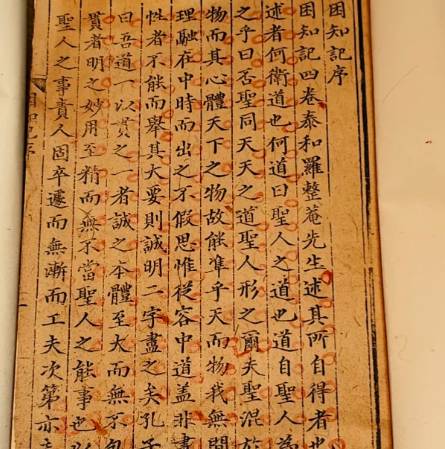 困知記序
困知記四卷泰和羅整菴先生述其所自得者也
述者何衛道也何道曰聖人之道也道自聖人爲
之乎曰否聖同天天之道聖人形之爾夫聖混於
物而其心體天下之物故能準乎天而物我無間
理融在中時而出之不假思惟從容中道蓋非盡
性者不能而舉其大要則誠明二字盡之矣孔子
曰吾道一以貫之一者誠之本體至大而無不包
貫者明之妙用至精而無不當聖人之能事也以
聖人之事責人固卒遽而無漸而工夫次第亦